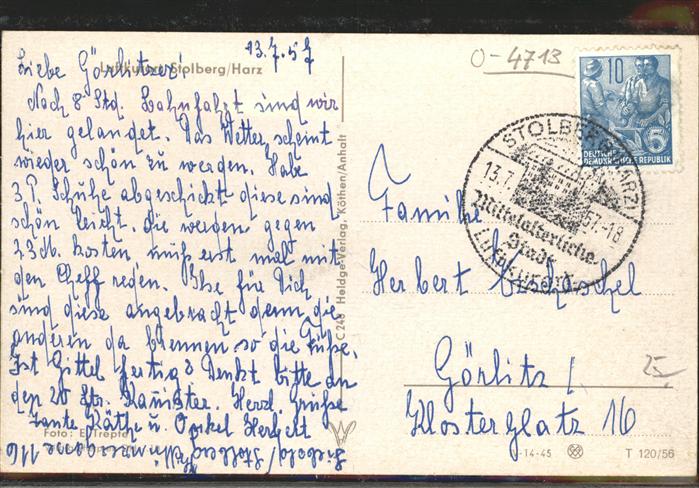 13.7.57
Luftkurort Stolberg/Harz
Liebe Görlitzer!
Nach 8 Std. Bahnfahrt sind wir
hier gelandet. Das Wetter scheint
wieder schön zu werden. Habe
3 P. Schuhe abgeschickt diese sind
schön leicht, die werden gegen
23 M. kosten, muß erst mal mit
den Cheff reden. Ilse für Dich
sind diese angebracht denn die
anderen da brennen so die Füße.
Ist Gittel fertig? Denkt bitte an
den 20 Ltr. Kanister. Herzl. Grüße
Tante Käthe u. Onkel Herbert
Foto: E. Trepte
Stolberg/
116
C 248 Heldge-Verlag, Köthen/Anhalt
0-4713
10
5
DEUTSCHE
DEMOKRATISCHE REPUBLIK
STOLBERG (HARZ)
13.7.57.-18
Mittelalterliche
Stadt
LUFTKURORT
Familie
Herbert
Görlitz
Klosterplatz 16
25
-14-45
T 120/56